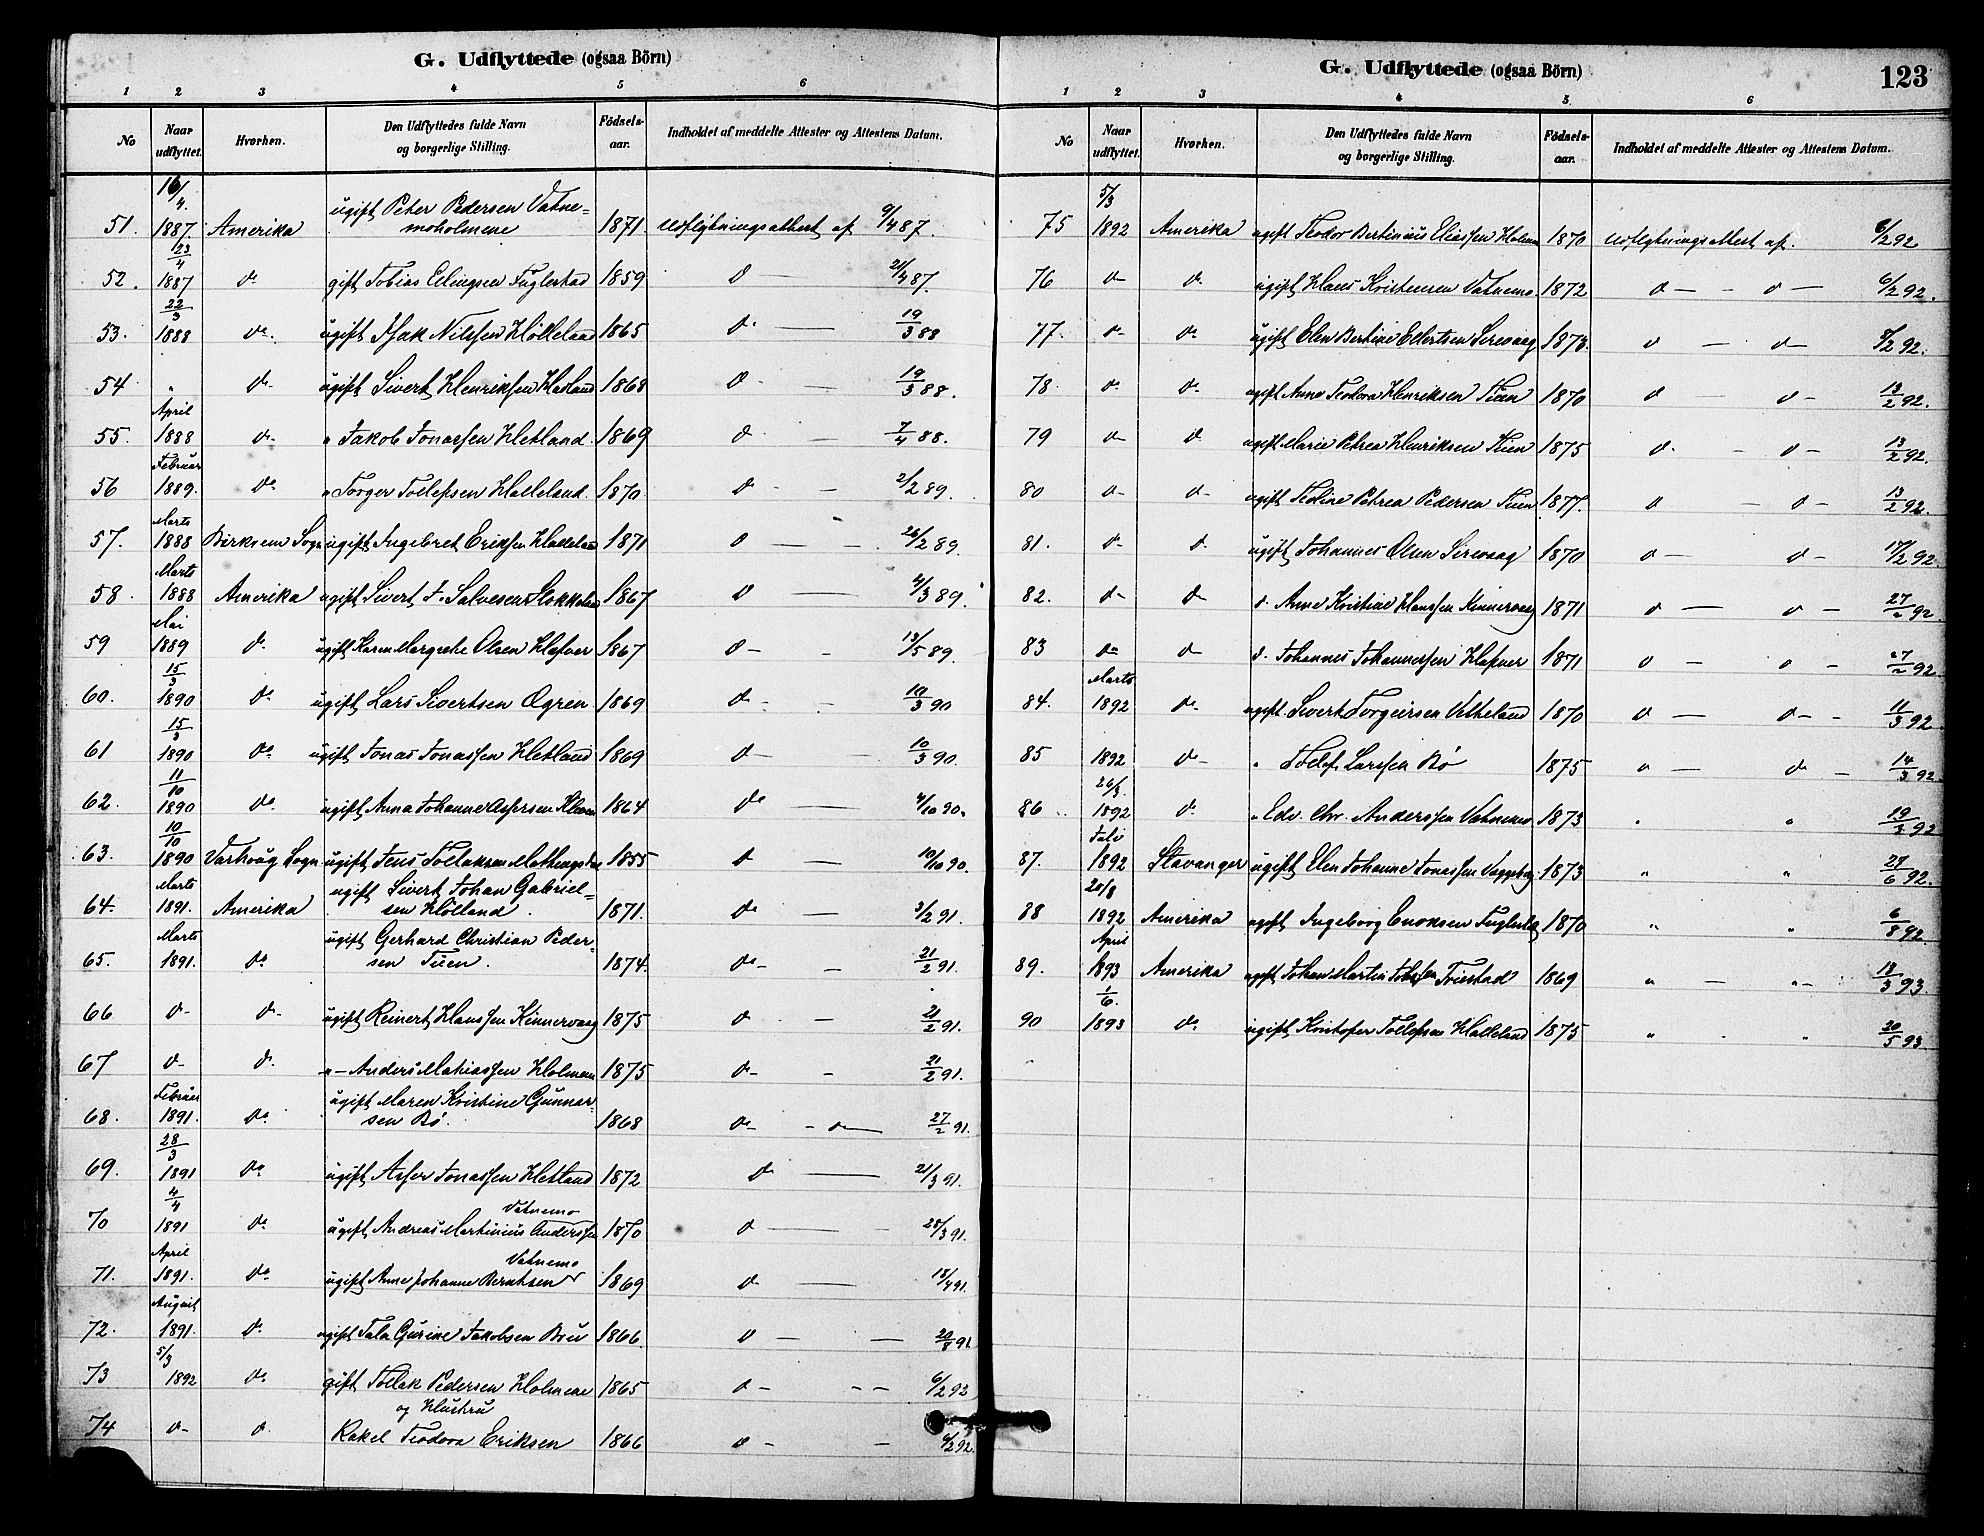 G. Udflyttede (ogsaa Börn)
1 2 3 4 5 6
No Naar udflyttet. Hvorhen. Den Udflyttedes fulde Navn og borgerlige Stilling. Födsels-aar. Indholdet af meddelte Attester og Attestens Datum.
51. 16/4 1887 Amerika ugift Peter Pedersen Vatne=
moholmene 1871 Udflytningsattest af 9/4 87.
52. 23/4 1887 do gift Tobias Elingsen Fuglestad 1859 d — 21/4 87.
53. 22/3 1888 do. ugift Isak Nilssen Hölleland 1865 d. — 19/3 88
54 " do ugift Sivert Henriksen Hetland 1868 d — 19/3 88.
55. April 1888 do. " Jakob Jonassen Hetland. 1869 d. — 7/4 88.
56 Februar 1889. do " Torger Tollefsen Halleland. 1870 d — 2/2 89.
57. Marts 1888 Birksem Sogn ugift Ingebret Eriksen Halleland 1871 d — 26/2 89.
58. Marts 1888 Amerika ugift Sivert T. Salvesen Stokkeland 1867 d — 4/3 89.
59 Mai 1889 do ugift Karen Margrethe Olsen Hafver 1867 d — 13/5 89.
60. 15/3 1890 do ugift Lars Sivertsen Ogren 1869 d — 10/3 90
61 15/3 1890 do ugift Jonas Jonassen Hetland 1869 d — 10/3 90.
62. 11/10 1890 do. ugift Anna Johanne Assersen 1864 do — 4/10 90.
63. 10/10 1890 Varhoug Sogn ugift Jens Tollaksen 1855 d — 10/10 90.
64. Marts 1891. Amerika ugift Sivert Johan Gabriel-
sen Hölland. 1871. do — 3/2 91.
65. Marts 1891. do ugift Gerhard Christian Peder-
sen Tuen. 1874. do — 21/2 91.
66 d- d- ugift Reinert Hanssen Kinnervaag 1875 d — 21/2 91.
67 d- d. "- Anders Mathiassen Holmene 1875 d- — 21/2 91.
68. Februar 1891. do. ugift Maren Kristine Gunnar-
sen Bö. 1868 do- - d — 27/2 91.
69. 28/3 1891 do ugift Asser Jonassen Hetland 1872 d — 21/3 91.
70 4/4 1891 do ugift Andreas Martinius Anderssen Vatnemo 1870 d — 28/3 91.
71. April 1891. do ugift Anne Johanne Berntsen Vatnemo 1869 d — 18/4 91.
72. August 1891. do. ugift Tala Gurine Jakobsen Bru 1866. d — 20/8 91
73 5/3 1892 do. gift Tollak Pedersen Holmene 1865 d — 6/2 92
og Hustru
74 d- d. Rakel Teodora Eriksen 1866 d — 6/2 92.
G. Udflyttede (ogsaa Börn)
123
1 2 3 4 5. 6
No Naar udflyttet. Hvorhen. Den Udflyttedes fulde Navn og borgerlige Stilling. Födsels-aar. Indholdet af meddelte Attester og Attestens Datum.
75 5/3 1892 Amerika ugift Teodor Bertinius Eliassen Holmene 1870 Udflytningsattest af. 6/2 92
76 d- d. ugift Hans Kristensen Vatnemo. 1872 d — d — 6/2 92.
77. d- d. ugift Elen Bertine Eilertsen Sirevaag 1873. d — d — 8/2 92.
78. d. d. ugift Anne Teodora Henriksen Tuen 1870 d — d — 13/2 92.
79 d- d ugift Marie Petrea Henriksen Tuen 1875 d. — d — 13/2 92.
80 d- d- ugift Teoline Petrea Pedersen Tuen 1877. d — d — 13/2 92.
81. d- d. ugift Johannes Olsen Sirevaag 1870 d — d — 17/2 92.
82. d- d- d. Anne Kristine Hanssen Kinnervaag 1871 d — d — 27/2 92.
83 d- d- d. Johannes Johannessen Hafver 1871 d — d — 27/2 92.
84. Marts 1892 do. ugift. Sivert Torgeirsen Vetteland 1870 d — d — 11/3 92.
85 1892 do- " Tollef Larssen Bö 1875 " — d — 14/3 92.
86 26/3. 1892 d. " Edv. Chr. Anderssen Vatnemo 1873 " " 19/3 92
87. Juli 1892 Stavanger ugift Elen Johanne Jonassen 1873 " " 29/6 92.
88 20/8 1892 Amerika ugift Ingeborg Enoksen Fuglestad 1870 " " 6/8 92.
89. April 1893 Amerika ugift Johan Martin Tobiassen 1869 " — "- 18/3 93.
90 1/6. 1893 do ugift Kristofer Tollefsen Halleland 1875 " " 20/5 93.